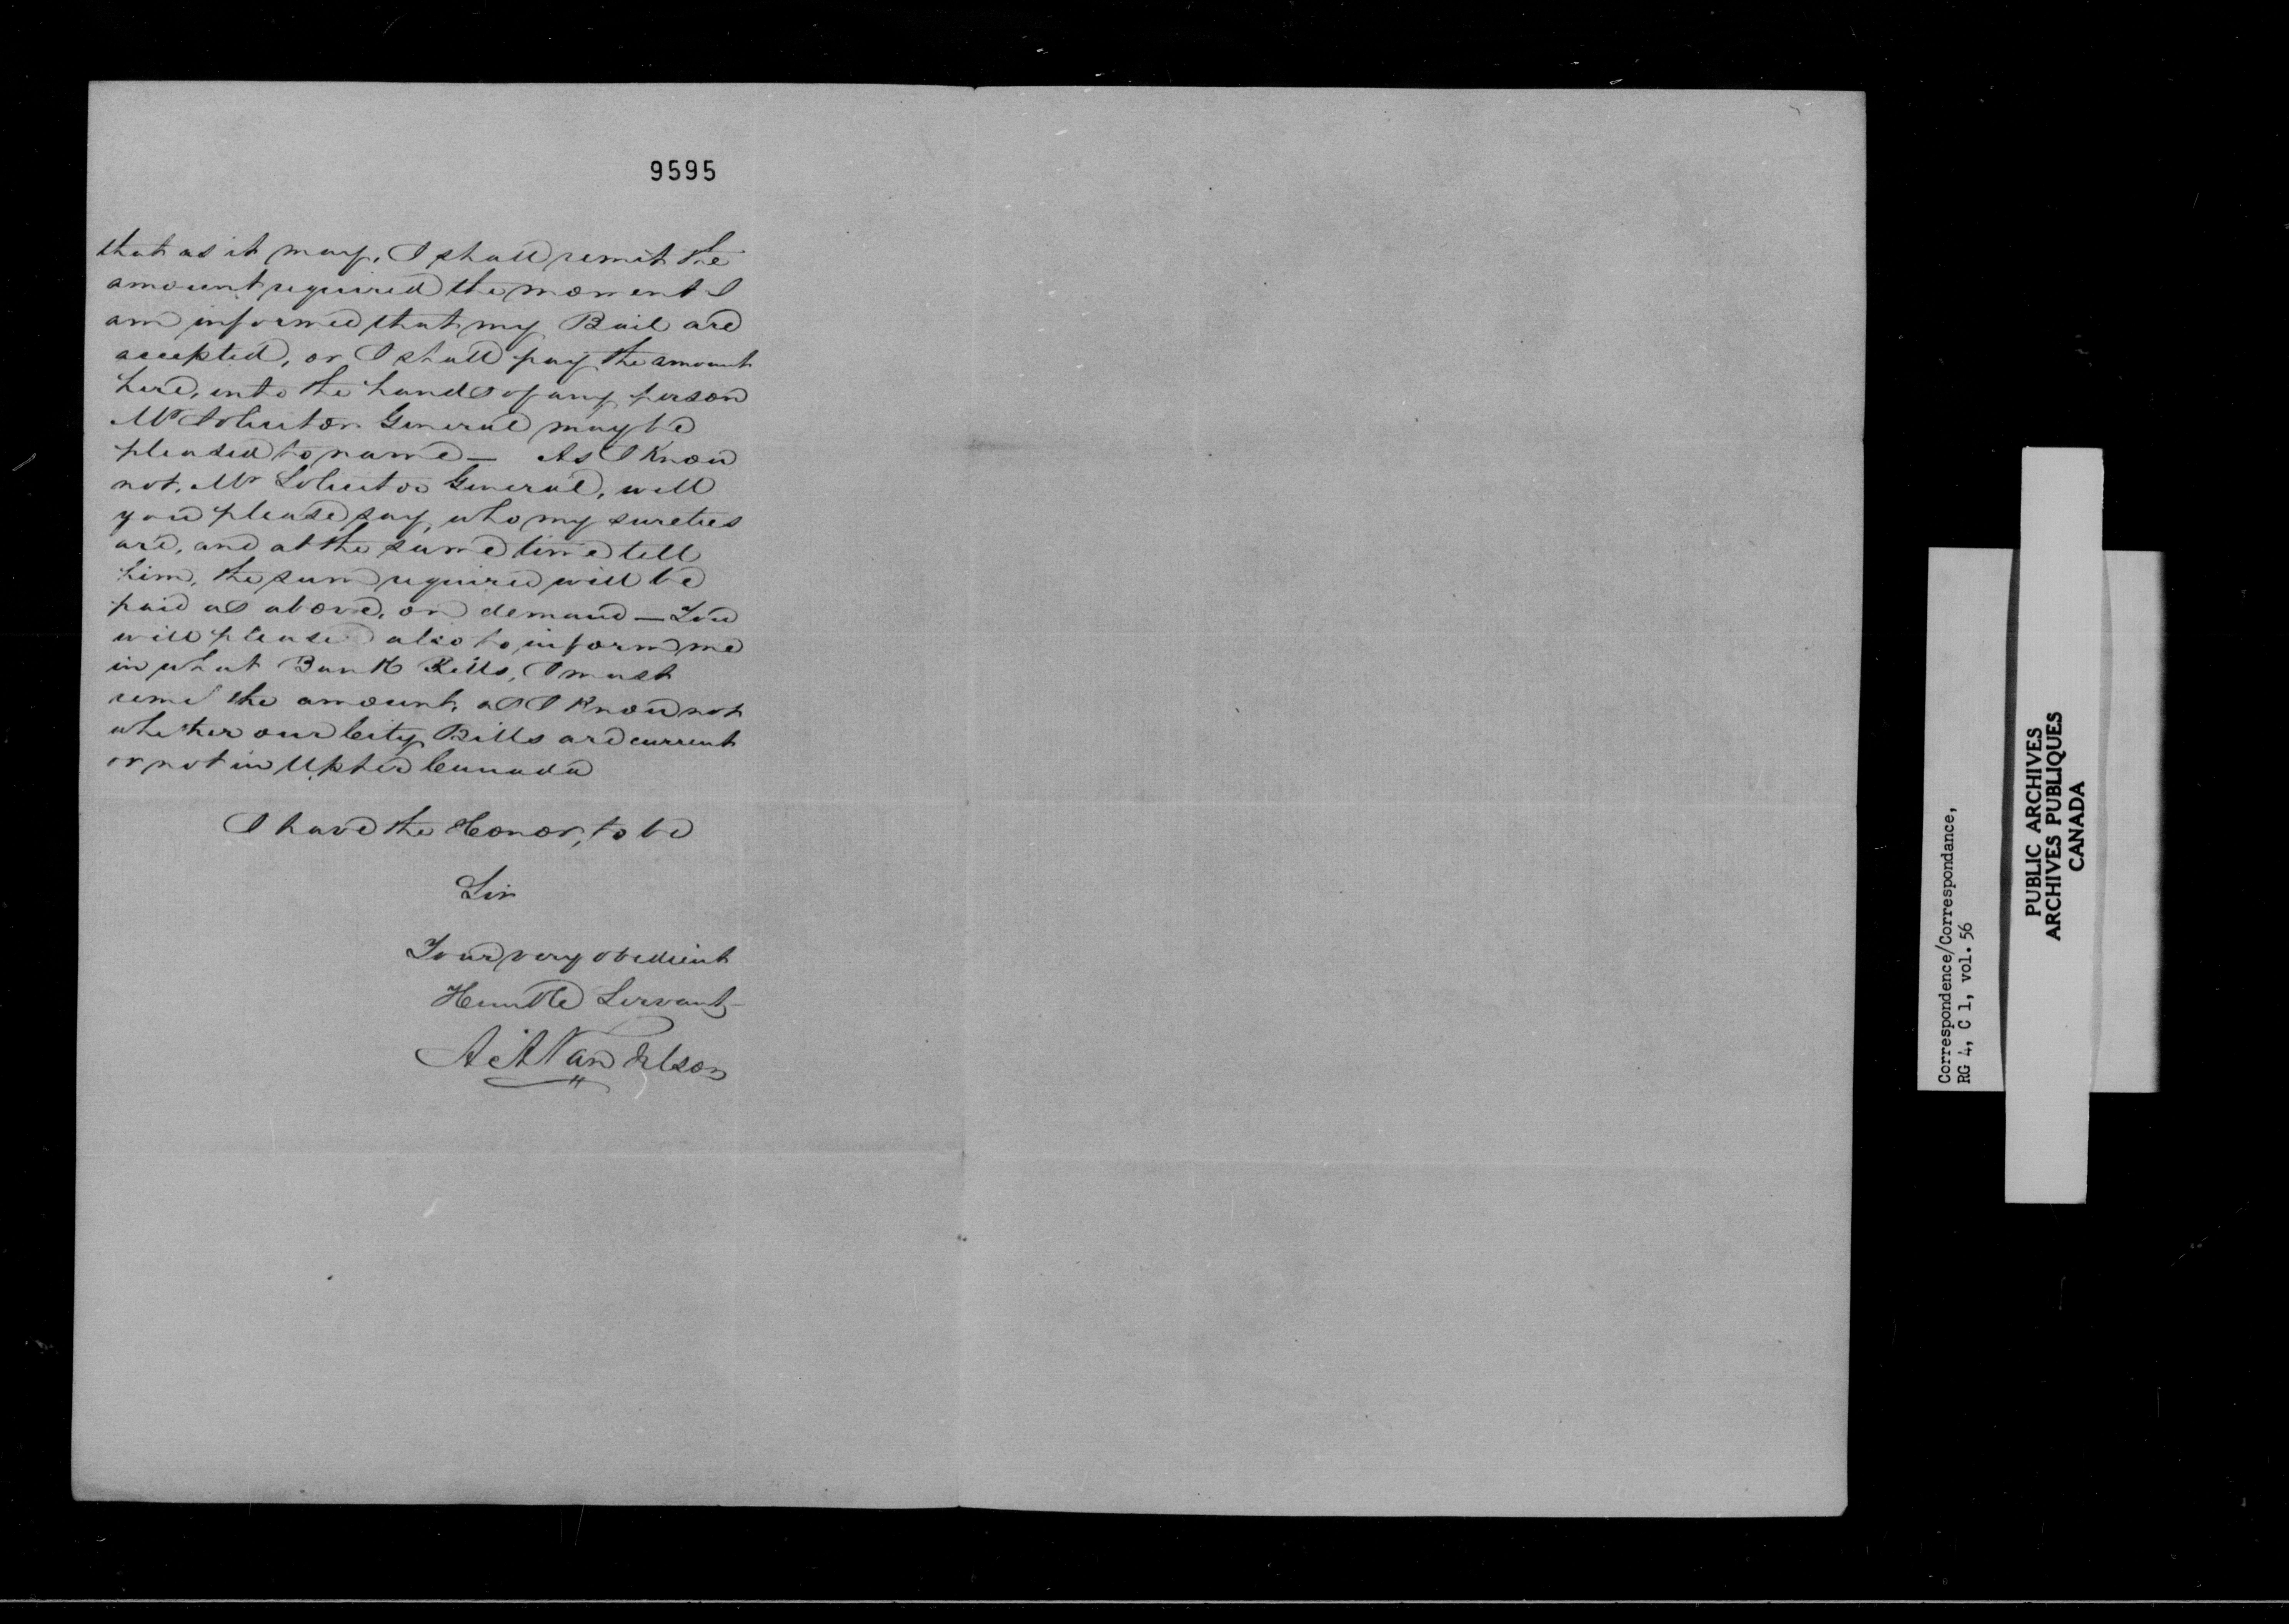 9595
that as it may, I shall remit the
amount required the moment I
am informed that my Bail are
accepted, or I shall pay the amount
here, into the hands of any person
Mr Solicitor General may be
pleased to name — As I know
not, Mr Solicitor General, will
you please say, who my sureties
are, and at the same time tell
him, the sum required will be
paid as above, on demand — You
will please also to inform me
in what Bank Bills, I must
remit the amount, as I know not
whether our City Bills are current
or not in Upper Canada
I have the Honor, to be
Sir
Your very obedient
Humble Servant
Correspondence/Correspondance,
RG 4, C 1, vol. 56
PUBLIC ARCHIVES
ARCHIVES PUBLIQUES
CANADA